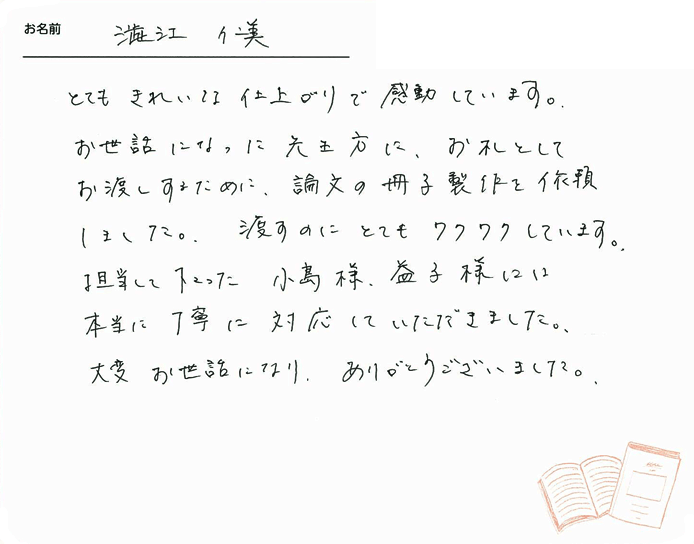 お名前 澁江 仁美
とてもきれいな仕上がりで感動しています。
お世話になった先生方に、お礼として
お渡しするために、論文の冊子製作を依頼
しました。渡すのにとてもワクワクしています。
担当して下さった 小島様、益子様には
本当に丁寧に対応していただきました。
大変 お世話になり、ありがとうございました。